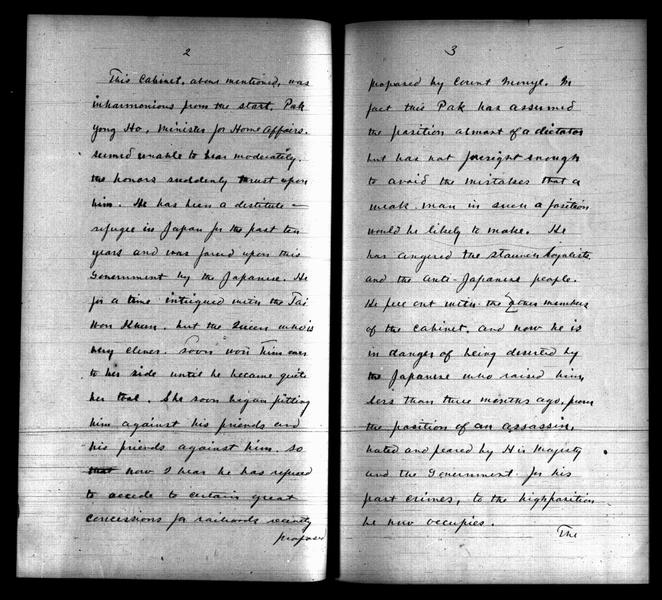 2
This Cabinet, above mentioned, was
inharmonious from the start. Pak
yong Ho, Minister for Home Affairs,
seemed unable to bear moderately
the honors suddenly thrust upon
him. He has been a destitute
refugee in Japan for the past ten
years and was forced upon this
Government by the Japanese. He
for a time intrigued with the Tai
Won Khun, but the Queen who is
very clever, soon won him over
to her side until he became quite
her tool. She soon began pitting
him against his friends and
his friends against him, so
that now I hear he has refused
to accede to certain great
concessions for railroads recently
proposed
3
proposed by Count Inouye. In
fact this Pak has assumed
the position almost of a dictator
but has not foresight enough
to avoid the mistakes that a
weak man in such a position
would be likely to make. He
has angered the staunch loyalists
and the anti-Japanese people.
He fell out with the other members
of the cabinet, and now he is
in danger of being deserted by
the Japanese who raised him,
less than three months ago, from
the position of an assassin,
hated and feared by His Majesty
and the Government for his
past crimes, to the high position
he now occupies.
The